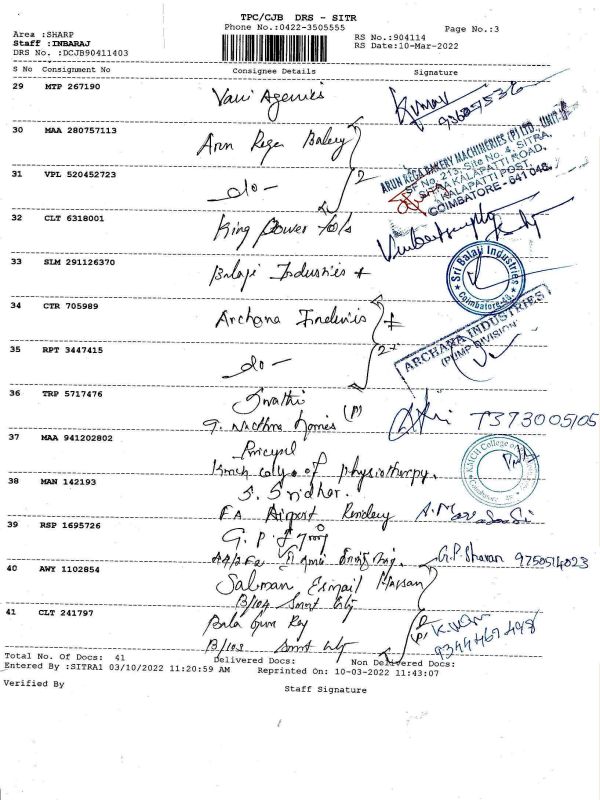 TPC/CJB DRS - SITR
Phone No.:0422-3505555
Page No.:3
Area :SHARP
Staff :INBARAJ
DRS No. :DCJB90411403
RS No.:904114
RS Date:10-Mar-2022
S No Consignment No Consignee Details Signature
29 MTP 267190 Vani Agencies Kumar
30 MAA 280757113 Arun Rega Bakery
ARUN REGA BAKERY MACHINERIES (P) LTD., UNIT-II
SF No. 213, Site No. 4, SITRA,
KALAPATTI ROAD,
KALAPATTI POST,
COIMBATORE - 641 048.
31 VPL 520452723 -do- 2
32 CLT 6318001 King Power
33 SLM 291126370 Balaji Industries
Sri Balaji Industries
Coimbatore-48.
34 CTR 705989 Archana Industries
35 RPT 3447415 -do- 2
ARCHANA INDUSTRIES
(PUMP DIVISION)
36 TRP 5717476 Swathi
Homes (P)
37 MAA 941202802 Principal
of physiotherapy.
KMCH College of
Coimbatore
38 MAN 142193 S. Sridhar.
Airport
39 RSP 1695726 G. P.
G.P. Sharan 9750514023
40 AWY 1102854 Salman Esmail Hassan
B/104 Smrt City
41 CLT 241797 Bala
B/103 Smrt City
Total No. Of Docs: 41 Delivered Docs: Non Delivered Docs:
Entered By :SITRA1 03/10/2022 11:20:59 AM Reprinted On: 10-03-2022 11:43:07
Verified By
Staff Signature